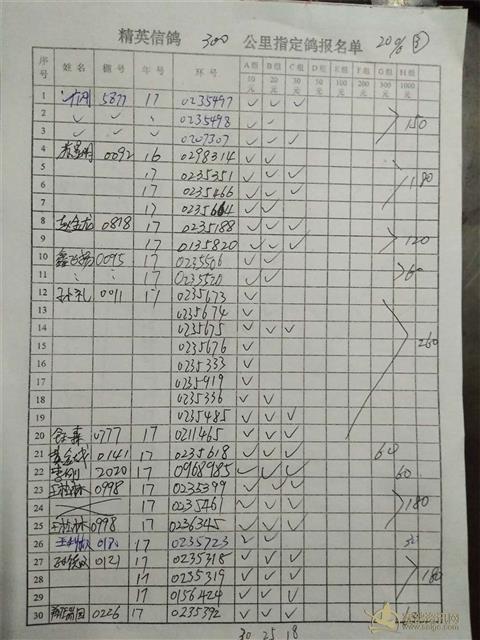 精英信鸽 300 公里指定鸽报名单 20% ③
序号 姓名 棚号 年号 环号 A组 10元 B组 20元 C组 30元 D组 50元 E组 100元 F组 200元 G组 300元 H组 1000元
1 5877 17 0235497 ✓ ✓ ✓
2 0235498 ✓ ✓ 150
3 0207307 ✓ ✓ ✓
4 0092 16 0298314 ✓ ✓
5 17 0235351 ✓ ✓ ✓
6 17 0235466 ✓ ✓ ✓ 180
7 17 0235664 ✓ ✓
8 0818 17 0235188 ✓ ✓ ✓
9 17 0135820 ✓ ✓ ✓ 120
10 0095 17 0235506 ✓ ✓
11 17 0235520 ✓ ✓ 60
12 孙礼 0011 17 0235673 ✓
13 0235674 ✓
14 0235675 ✓ ✓ ✓
15 0235676 ✓ 260
16 0235333 ✓
17 0235919 ✓
18 0235336 ✓ ✓
19 0235485 ✓ ✓ ✓
20 0777 17 0211465 ✓ ✓ ✓
21 0141 17 0235618 ✓ ✓ ✓ 60
22 2020 17 0968985 ✓ ✓ ✓ 60
23 王桂林 0998 17 0235399 ✓ ✓ ✓
24 17 0235461 ✓ ✓ ✓ 180
25 王桂林 0998 17 0236345 ✓ ✓ ✓
26 17 0235723 ✓ ✓
27 0121 17 0235318 ✓ ✓ ✓
28 17 0235319 ✓ ✓ ✓ 180
29 17 0156424 ✓ ✓ ✓
30 0226 17 0235392 ✓ ✓ ✓
30 25 18